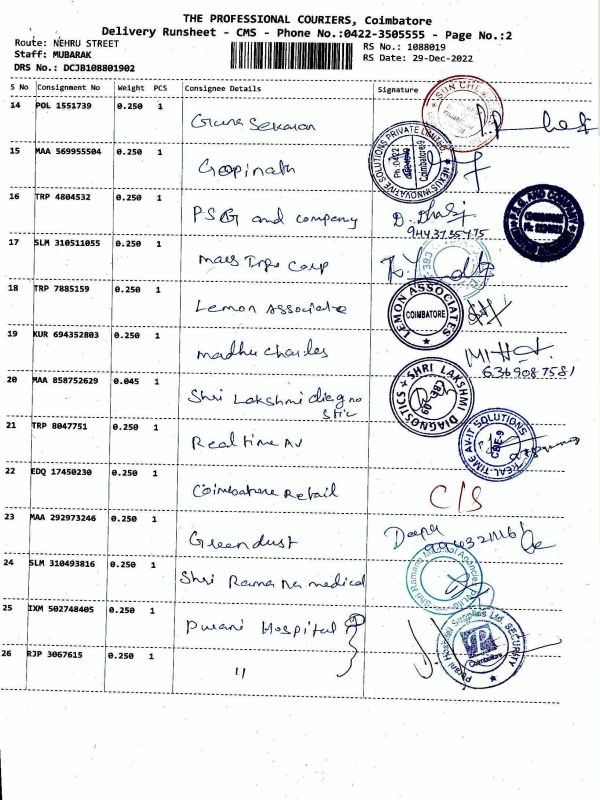 THE PROFESSIONAL COURIERS, Coimbatore
Delivery Runsheet - CMS - Phone No.:0422-3505555 - Page No.:2
Route: NEHRU STREET
RS No.: 1088019
Staff: MUBARAK
RS Date: 29-Dec-2022
DRS No.: DCJB108801902
S No Consignment No Weight PCS Consignee Details Signature
14 POL 1551739 0.250 1
SUN
15 MAA 569955504 0.250 1 Gopinath
NEXUS INNOVATIVE SOLUTIONS PRIVATE LIMITED
Ph:0422
Coimbatore
16 TRP 4804532 0.250 1 PSG and company
9443735475
AND COMPANY
COIMBATORE
17 SLM 310511055 0.250 1 Corp
18 TRP 7885159 0.250 1 Lemon Associate
LEMON ASSOCIATES
COIMBATORE
19 KUR 694352803 0.250 1 madhu charles
6369087581
20 MAA 858752629 0.045 1 Shri Lakshmi diagno
stic
SHRI LAKSHMI DIAGNOSTICS
CBE-
21 TRP 8047751 0.250 1 Realtime AV
REAL-TIME AV-IT SOLUTIONS
CBE-9
22 EDQ 17450230 0.250 1 Coimbatore Retail
C/S
23 MAA 292973246 0.250 1 Greendust
Deepa
24 SLM 310493816 0.250 1 Shri Ramana medical
Shri Ramana Medical Agencies Pvt Ltd
25 IXM 502748405 0.250 1 Pwani Hospital
Hospital Supplies Ltd. SECURITY
Coimbatore
26 RJP 3067615 0.250 1 "